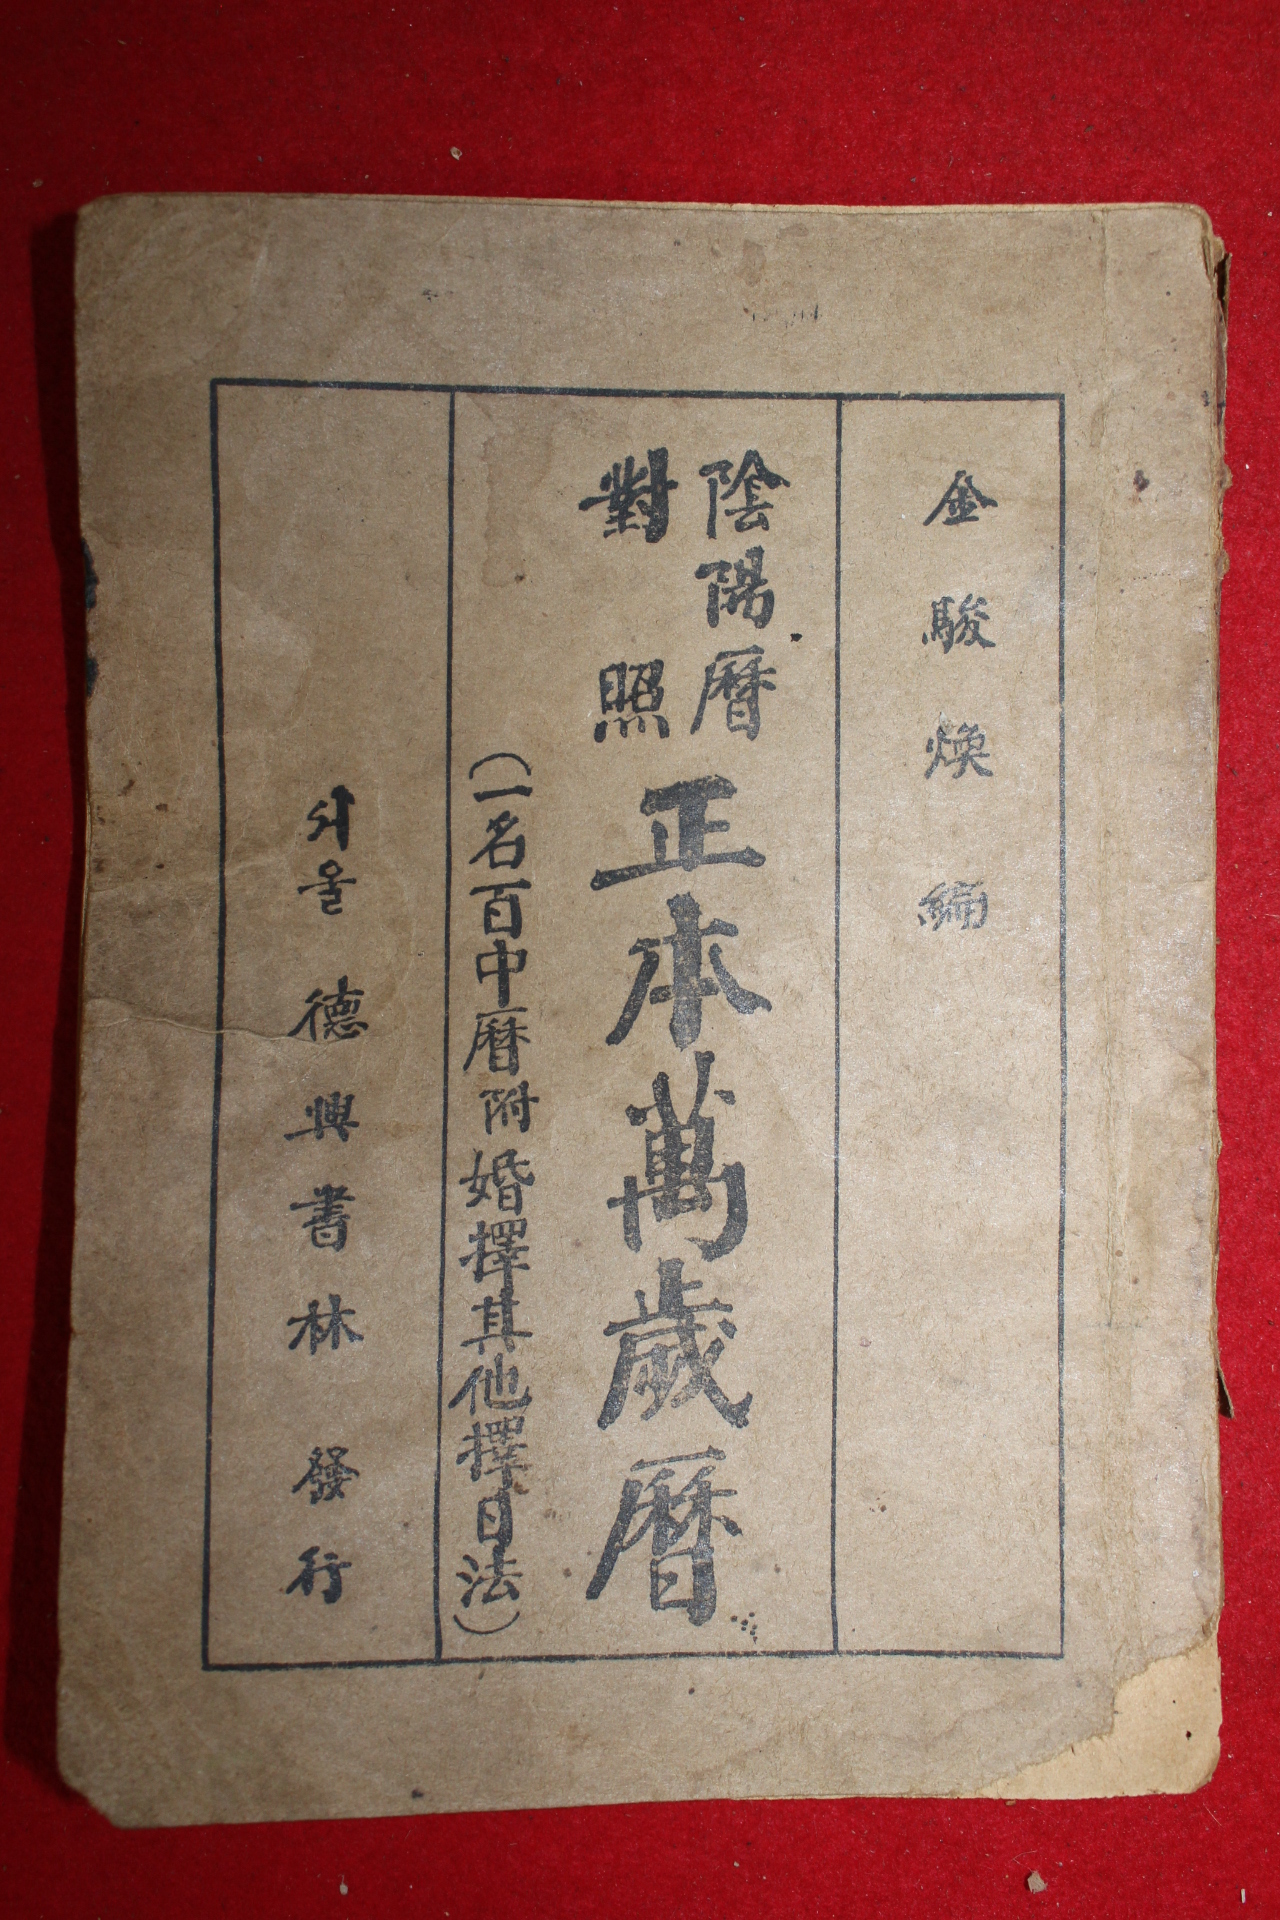 金駿煥 編
陰陽曆
對照
正本萬歲曆
(一名百中曆附婚擇其他擇日法)
서울 德興書林 發行